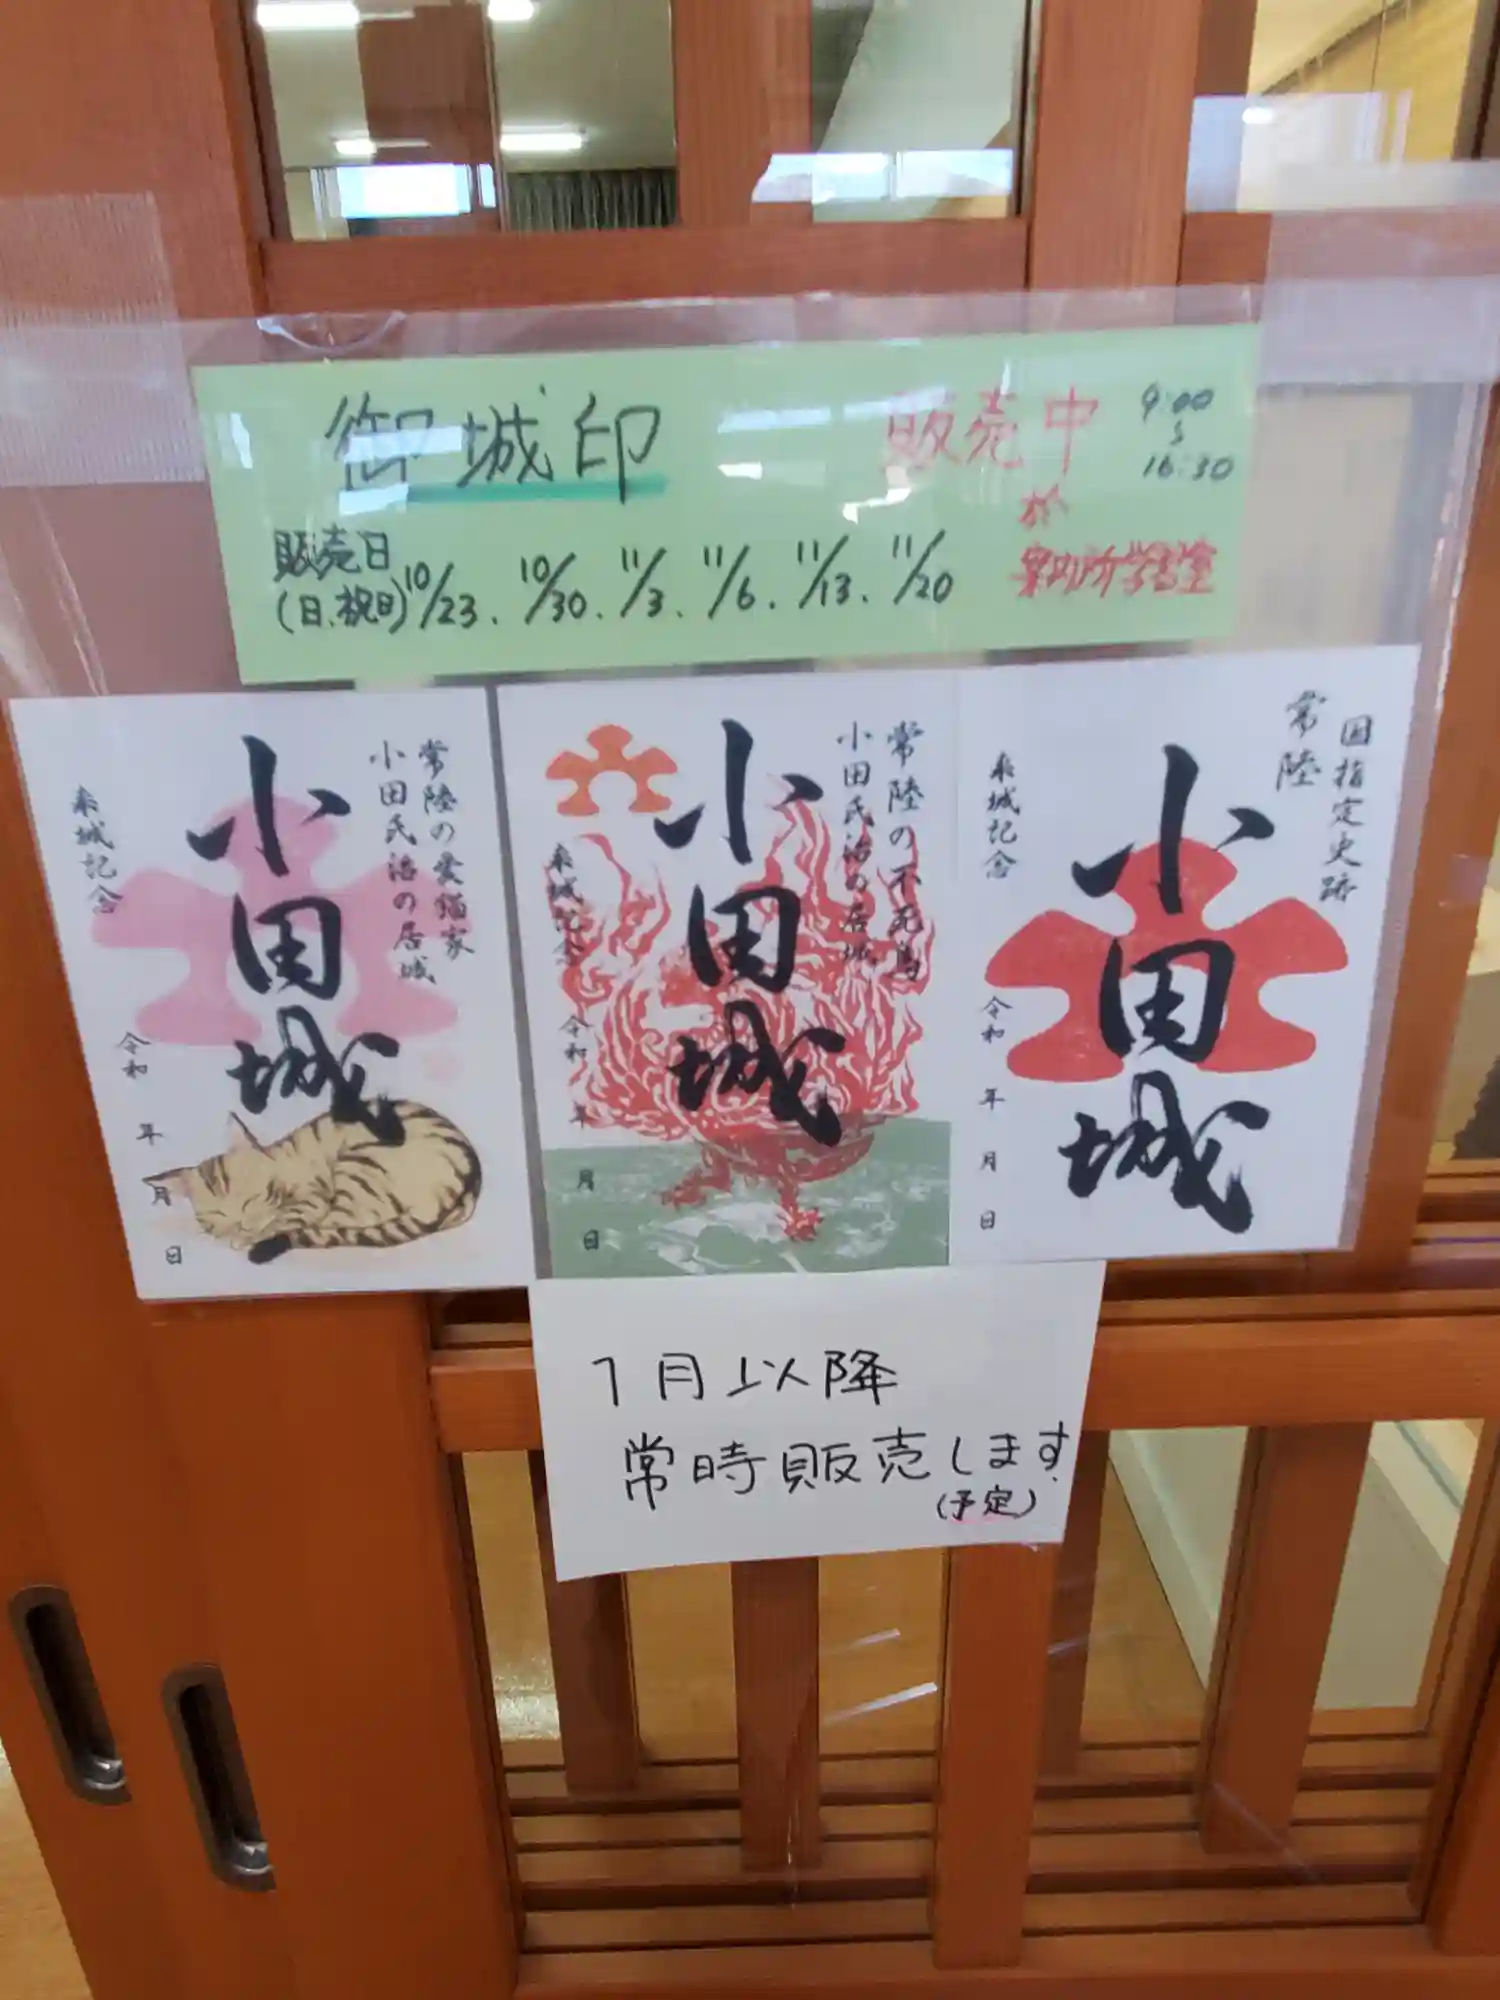 御城印 販売中 9:00
〜
16:30
於
案内所学習室
販売日
(日、祝日) 10/23. 10/30. 11/3. 11/6. 11/13. 11/20
常陸の愛猫家
小田氏治の居城
小田城
来城記念
令和 年 月 日
常陸の不死鳥
小田氏治の居城
小田城
来城記念
令和 年 月 日
国指定史跡
常陸
小田城
来城記念
令和 年 月 日
1月以降
常時販売します
(予定)